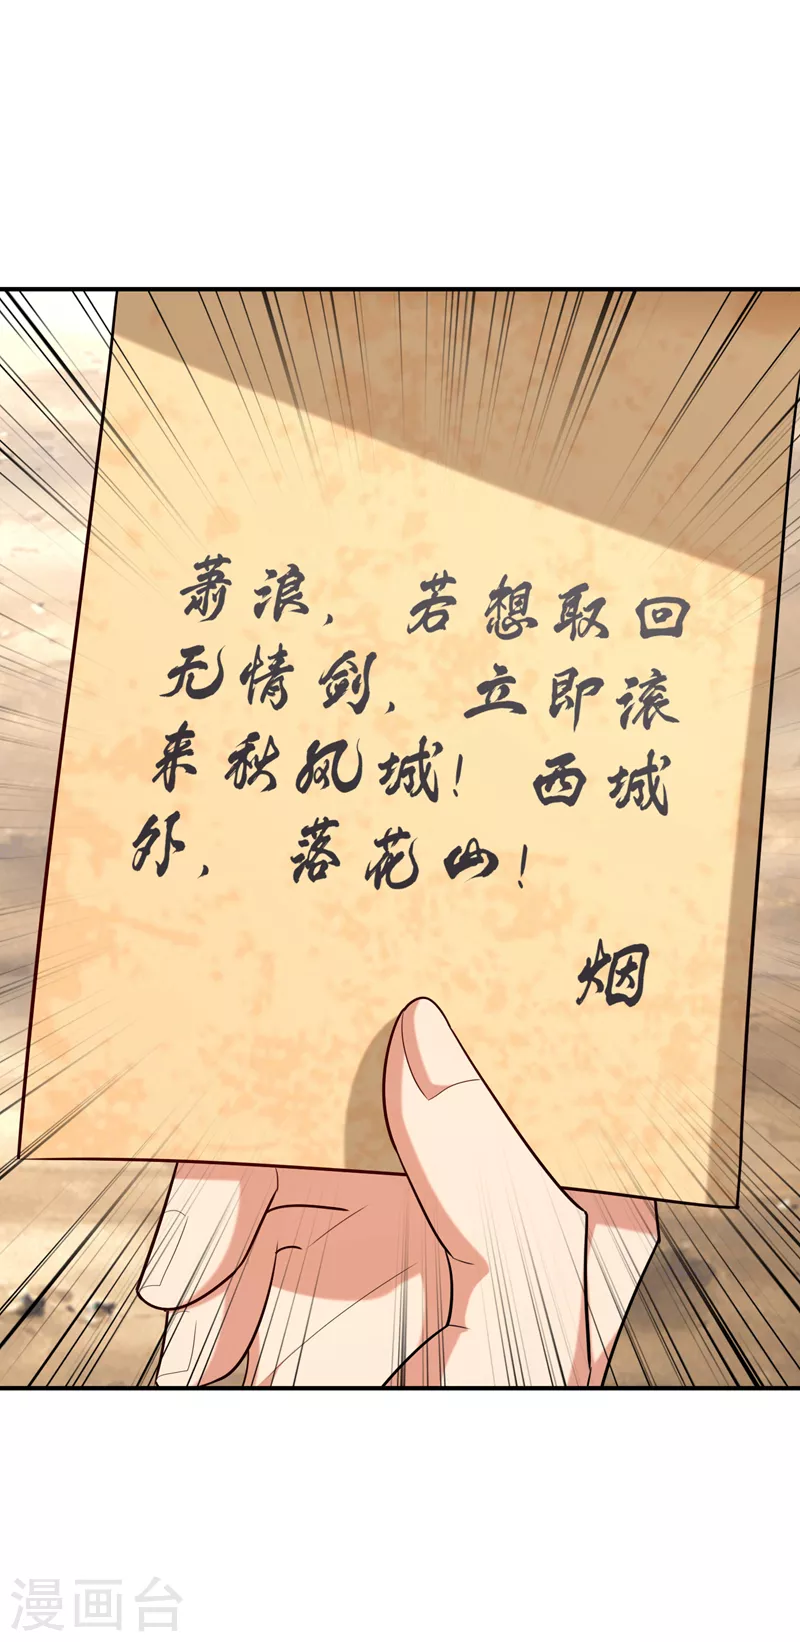 萧浪，若想取回
无情剑，立即滚
来秋风城！西城
外，落花山！
烟
漫画台